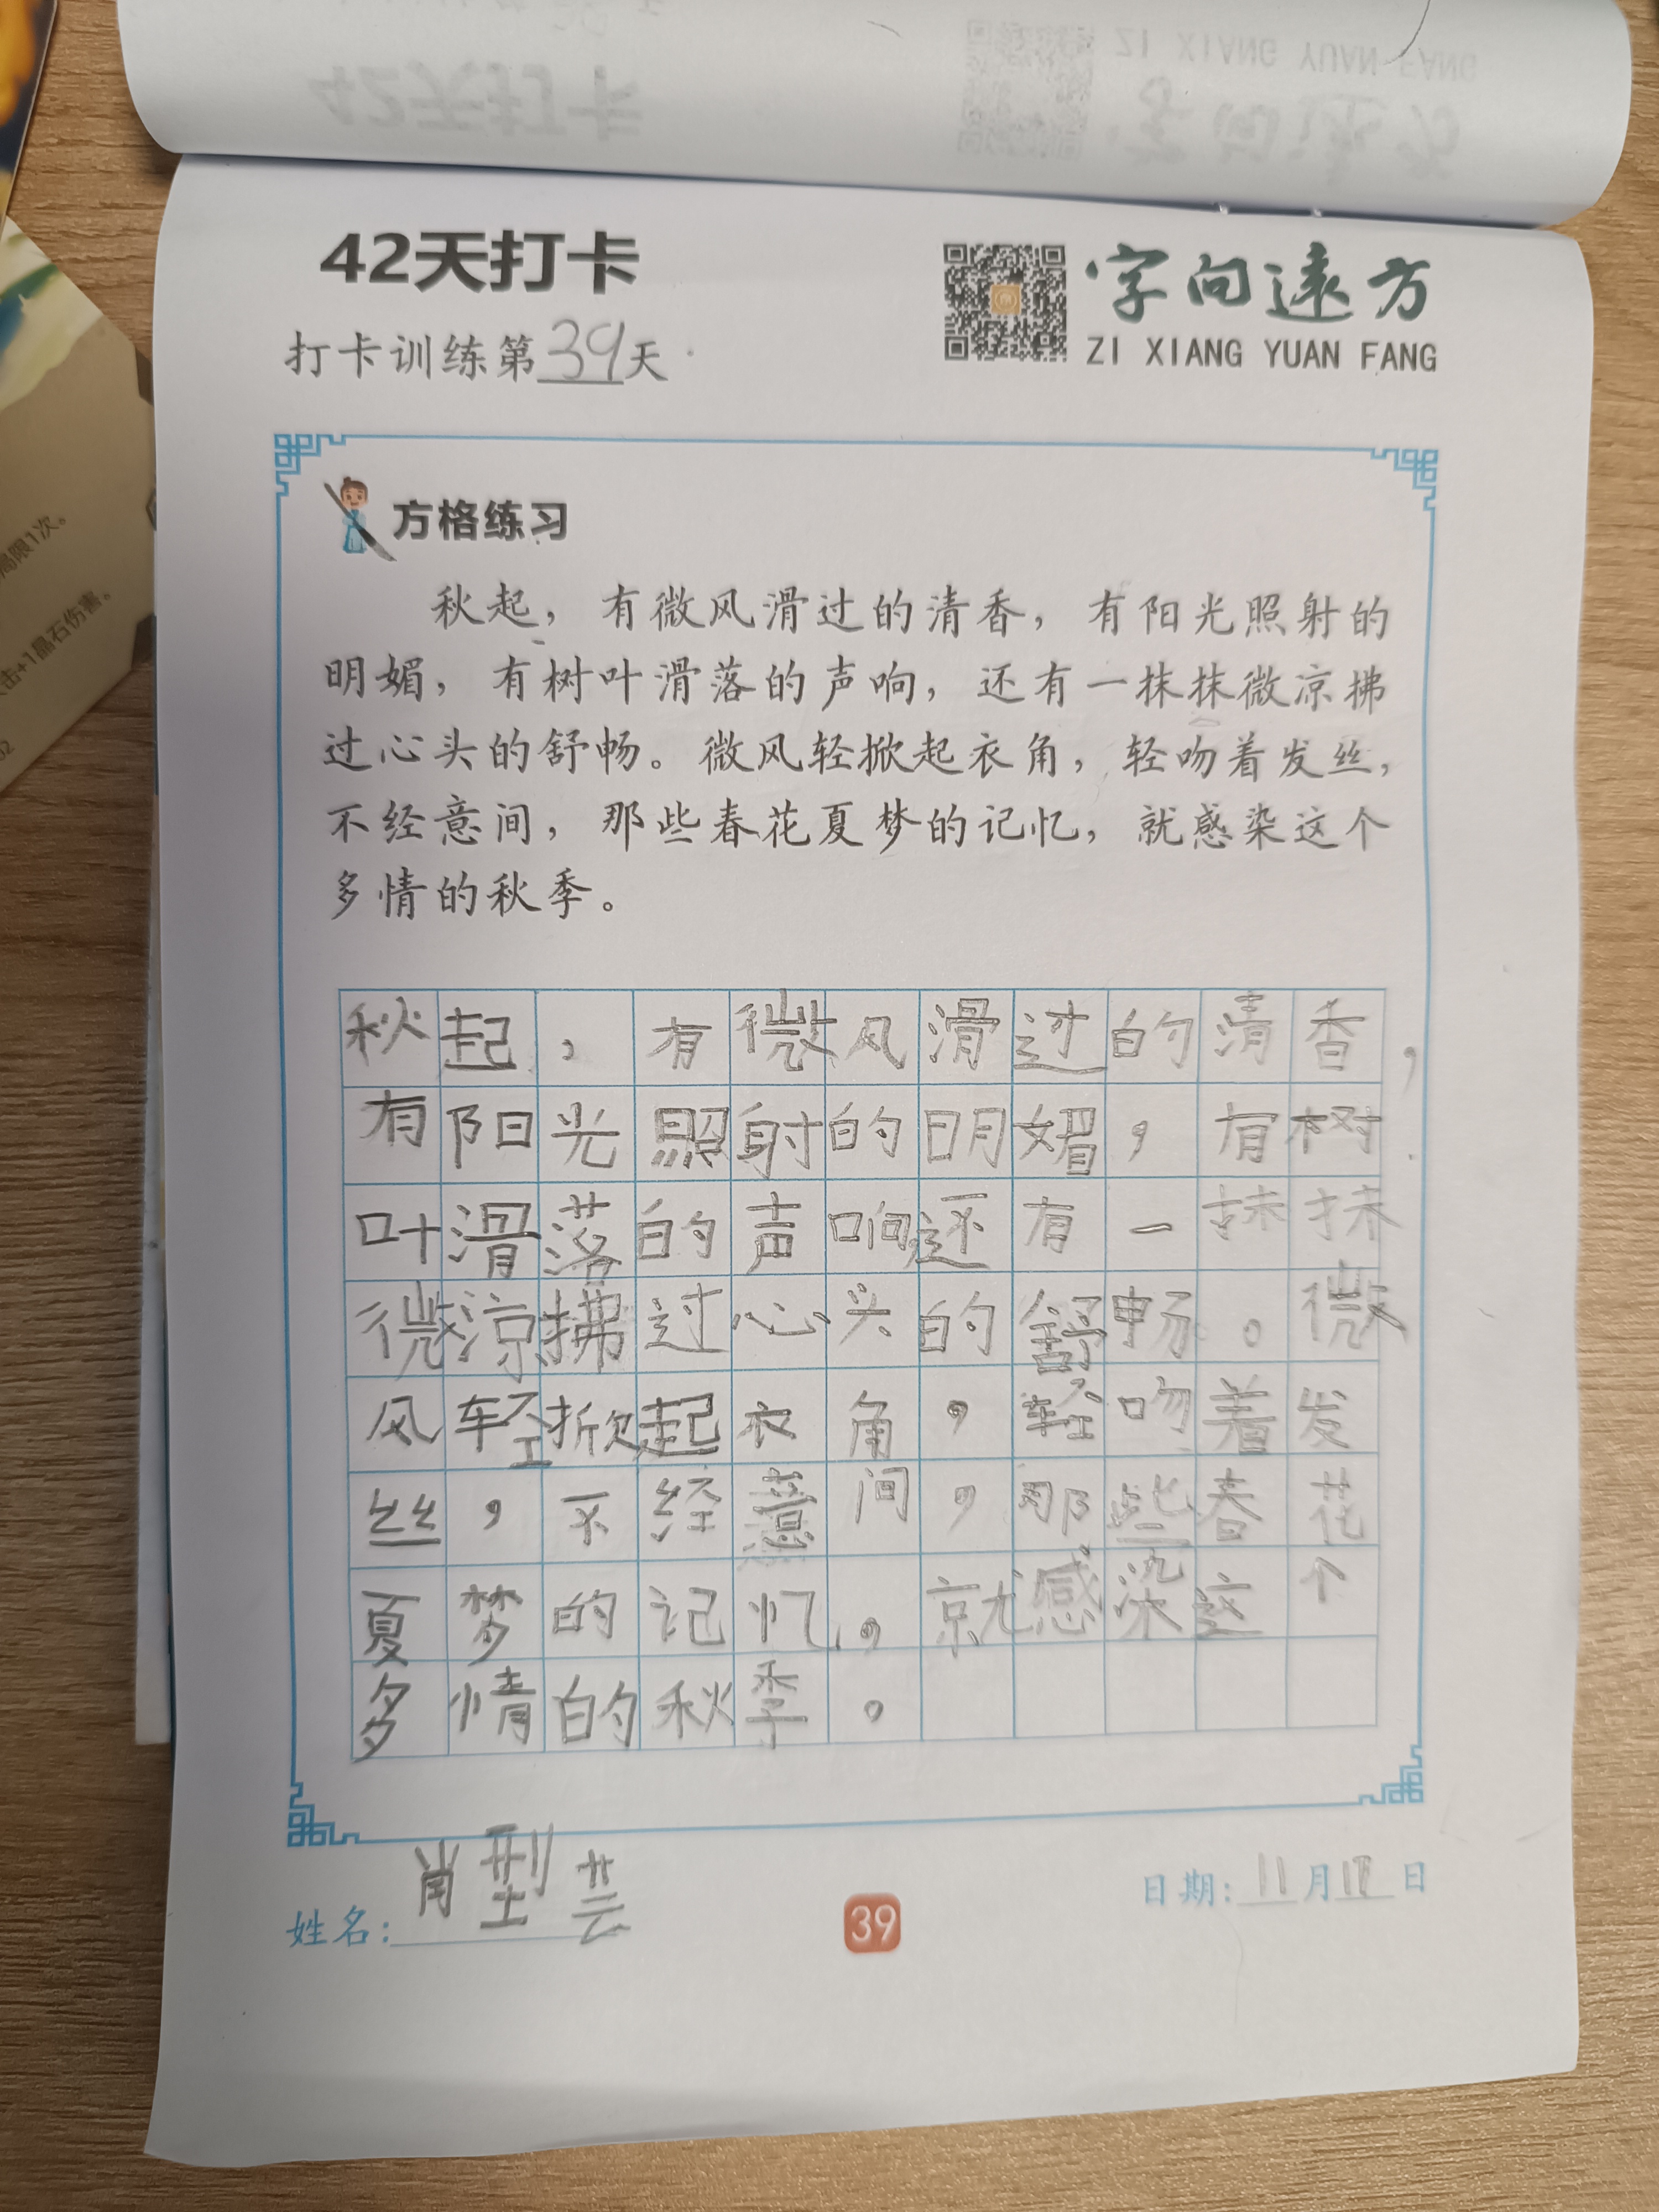 42天打卡
字向远方
ZI XIANG YUAN FANG
打卡训练第39天
方格练习
秋起，有微风滑过的清香，有阳光照射的
明媚，有树叶滑落的声响，还有一抹抹微凉拂
过心头的舒畅。微风轻掀起衣角，轻吻着发丝，
不经意间，那些春花夏梦的记忆，就感染这个
多情的秋季。
秋起，有微风滑过的清香，
有阳光照射的明媚，有树
叶滑落的声响还有一抹抹
微凉拂过心头的舒畅。微
风轻掀起衣角，轻吻着发
丝，不经意间，那些春花
夏梦的记忆，就感染这个
多情的秋季。
姓名：肖型芸
39
日期：11月日
局限1次。
击+1晶石伤害。